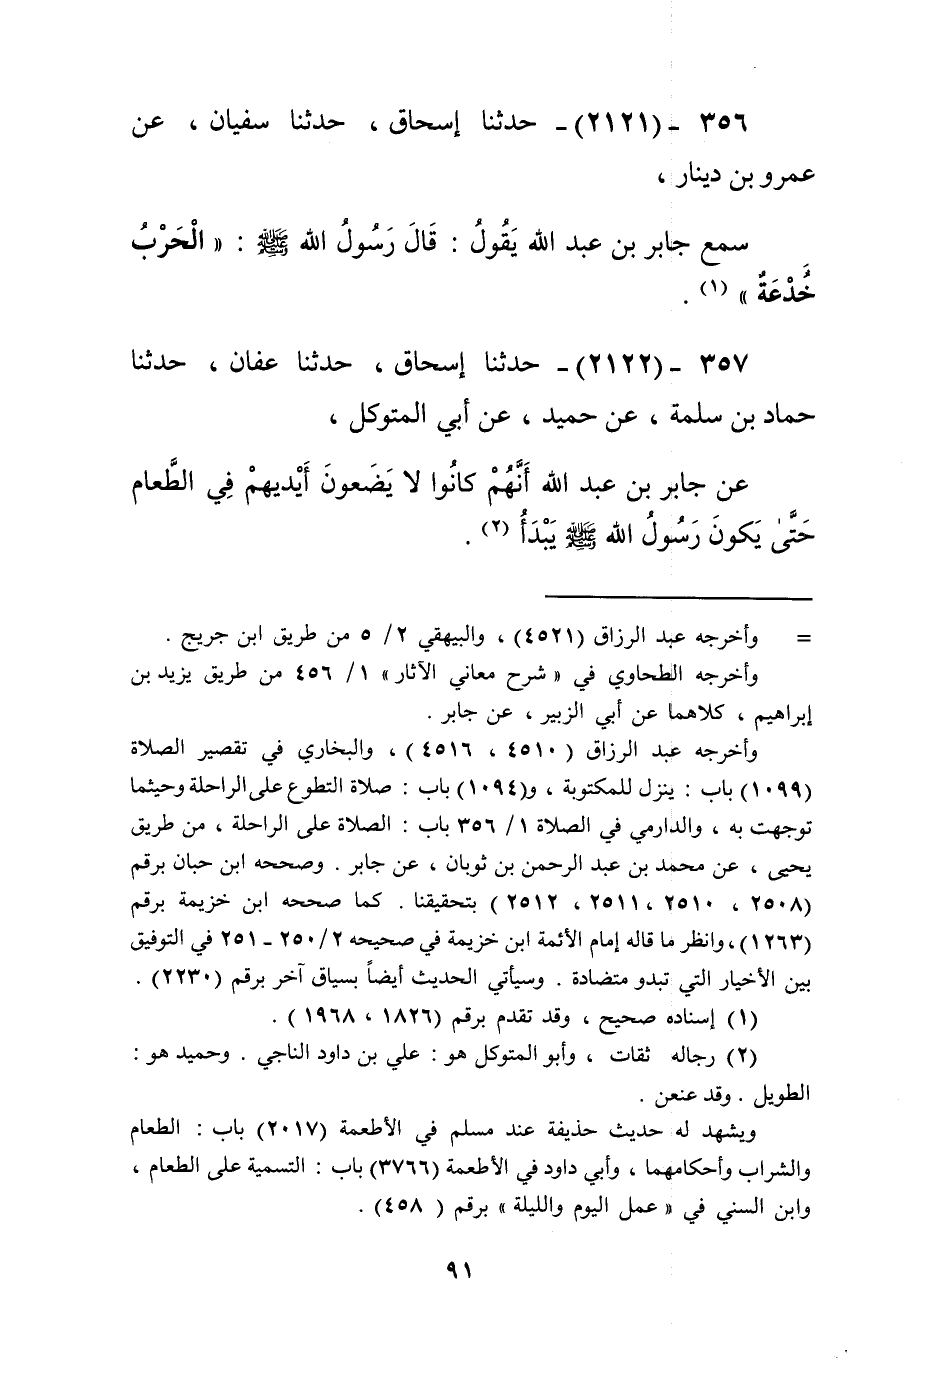 ٣٥٦ ـ (٢١٢١) ـ حدثنا إسحاق ، حدثنا سفيان ، عن
عمرو بن دينار ،
سمع جابر بن عبد الله يَقُولُ : قَالَ رَسُولُ الله ﷺ : « الْحَرْبُ
خُدْعَةٌ » (١) .
٣٥٧ ـ (٢١٢٢) ـ حدثنا إسحاق ، حدثنا عفان ، حدثنا
حماد بن سلمة ، عن حميد ، عن أبي المتوكل ،
عن جابر بن عبد الله أَنَّهُمْ كانُوا لا يَضَعونَ أَيْديهمْ فِي الطَّعام
حَتَّىٰ يَكونَ رَسُولُ الله ﷺ يَبْدَأُ (٢) .
= وأخرجه عبد الرزاق (٤٥٢١) ، والبيهقي ٢/ ٥ من طريق ابن جريج .
وأخرجه الطحاوي في « شرح معاني الآثار » ١/ ٤٥٦ من طريق يزيد بن
إبراهيم ، كلاهما عن أبي الزبير ، عن جابر .
وأخرجه عبد الرزاق ( ٤٥١٠ ، ٤٥١٦ ) ، والبخاري في تقصير الصلاة
(١٠٩٩) باب : ينزل للمكتوبة ، و(١٠٩٤) باب : صلاة التطوع على الراحلة وحيثما
توجهت به ، والدارمي في الصلاة ١/ ٣٥٦ باب : الصلاة على الراحلة ، من طريق
يحيى ، عن محمد بن عبد الرحمن بن ثوبان ، عن جابر . وصححه ابن حبان برقم
(٢٥٠٨ ، ٢٥١٠ ، ٢٥١١ ، ٢٥١٢ ) بتحقيقنا . كما صححه ابن خزيمة برقم
(١٢٦٣)، وانظر ما قاله إمام الأئمة ابن خزيمة في صحيحه ٢/ ٢٥٠ ـ ٢٥١ في التوفيق
بين الأخبار التي تبدو متضادة . وسيأتي الحديث أيضاً بسياق آخر برقم (٢٢٣٠) .
(١) إسناده صحيح ، وقد تقدم برقم (١٨٢٦ ، ١٩٦٨ ) .
(٢) رجاله ثقات ، وأبو المتوكل هو : علي بن داود الناجي . وحميد هو :
الطويل . وقد عنعن .
ويشهد له حديث حذيفة عند مسلم في الأطعمة (٢٠١٧) باب : الطعام
والشراب وأحكامهما ، وأبي داود في الأطعمة (٣٧٦٦) باب : التسمية على الطعام ،
وابن السني في « عمل اليوم والليلة » برقم ( ٤٥٨) .
٩١